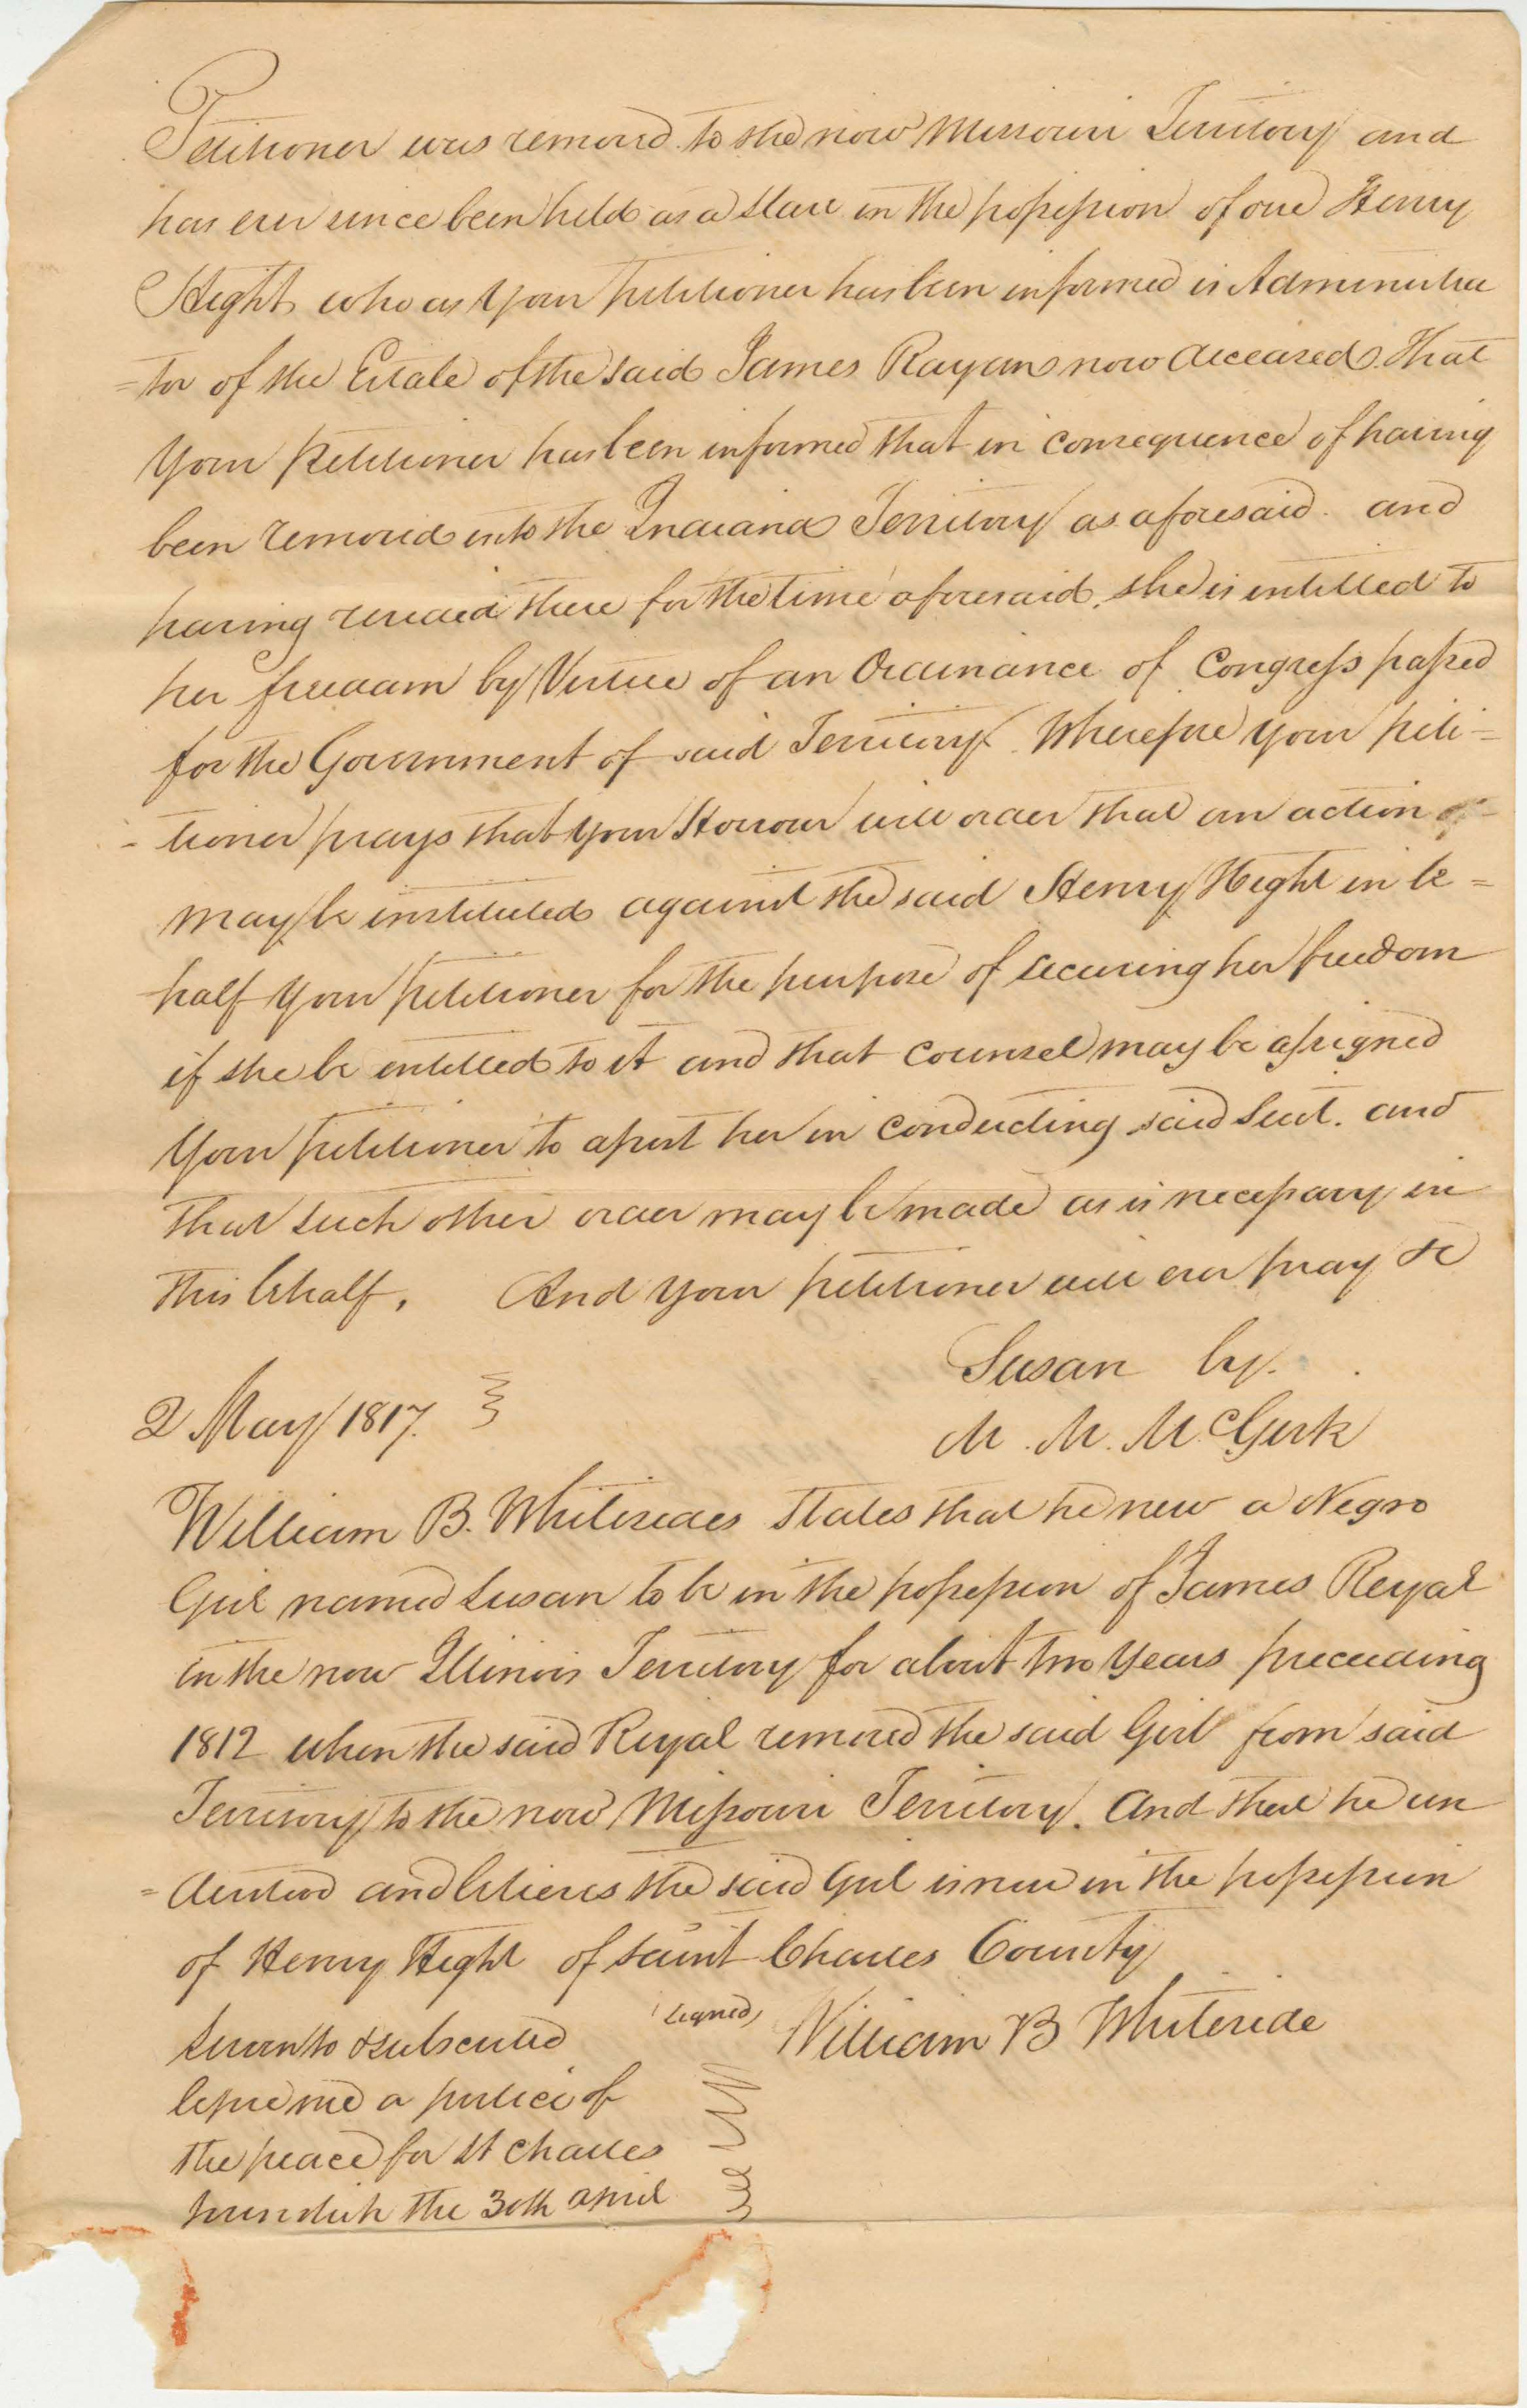 Petitioner was removed to the now Missouri Territory and
has ever since been held as a slave in the possession of one Henry
Hight who as your petitioner has been informed is Administra
=tor of the Estate of the said James Rayan now deceased. That
your petitioner has been informed that in consequence of having
been removed into the Indiana Territory as aforesaid. and
having resided there for the time aforesaid, she is entitled to
her freedom by Virtue of an Ordinance of Congress passed
for the Government of said Territory. Wherefore your peti=
-tioner prays that your Honour will order that an action
may be instituted against the said Henry Hight in be=
half your petitioner for the purpose of securing her freedom
if she be entitled to it and that counsel may be assigned
your petitioner to assist her in conducting said suit. and
that such other order may be made as is necessary in
this behalf. And your petitioner will ever pray &c
Susan by.
2 May 1817.
M. M. McGirk
William B. Whitesides States that he new a Negro
Girl named Susan to be in the possession of James Reyal
in the now Illinois Territory for about two years preceeding
1812 when the said Reyal removed the said Girl from said
Territory to the now Missouri Territory. And that he un
=derstood and believes the said Girl is now in the possession
of Henry Hight of Saint Charles County
(signed) William B Whiteside
Sworn to & subscribed
before me a justice of
the peace for St Charles
the 30th april